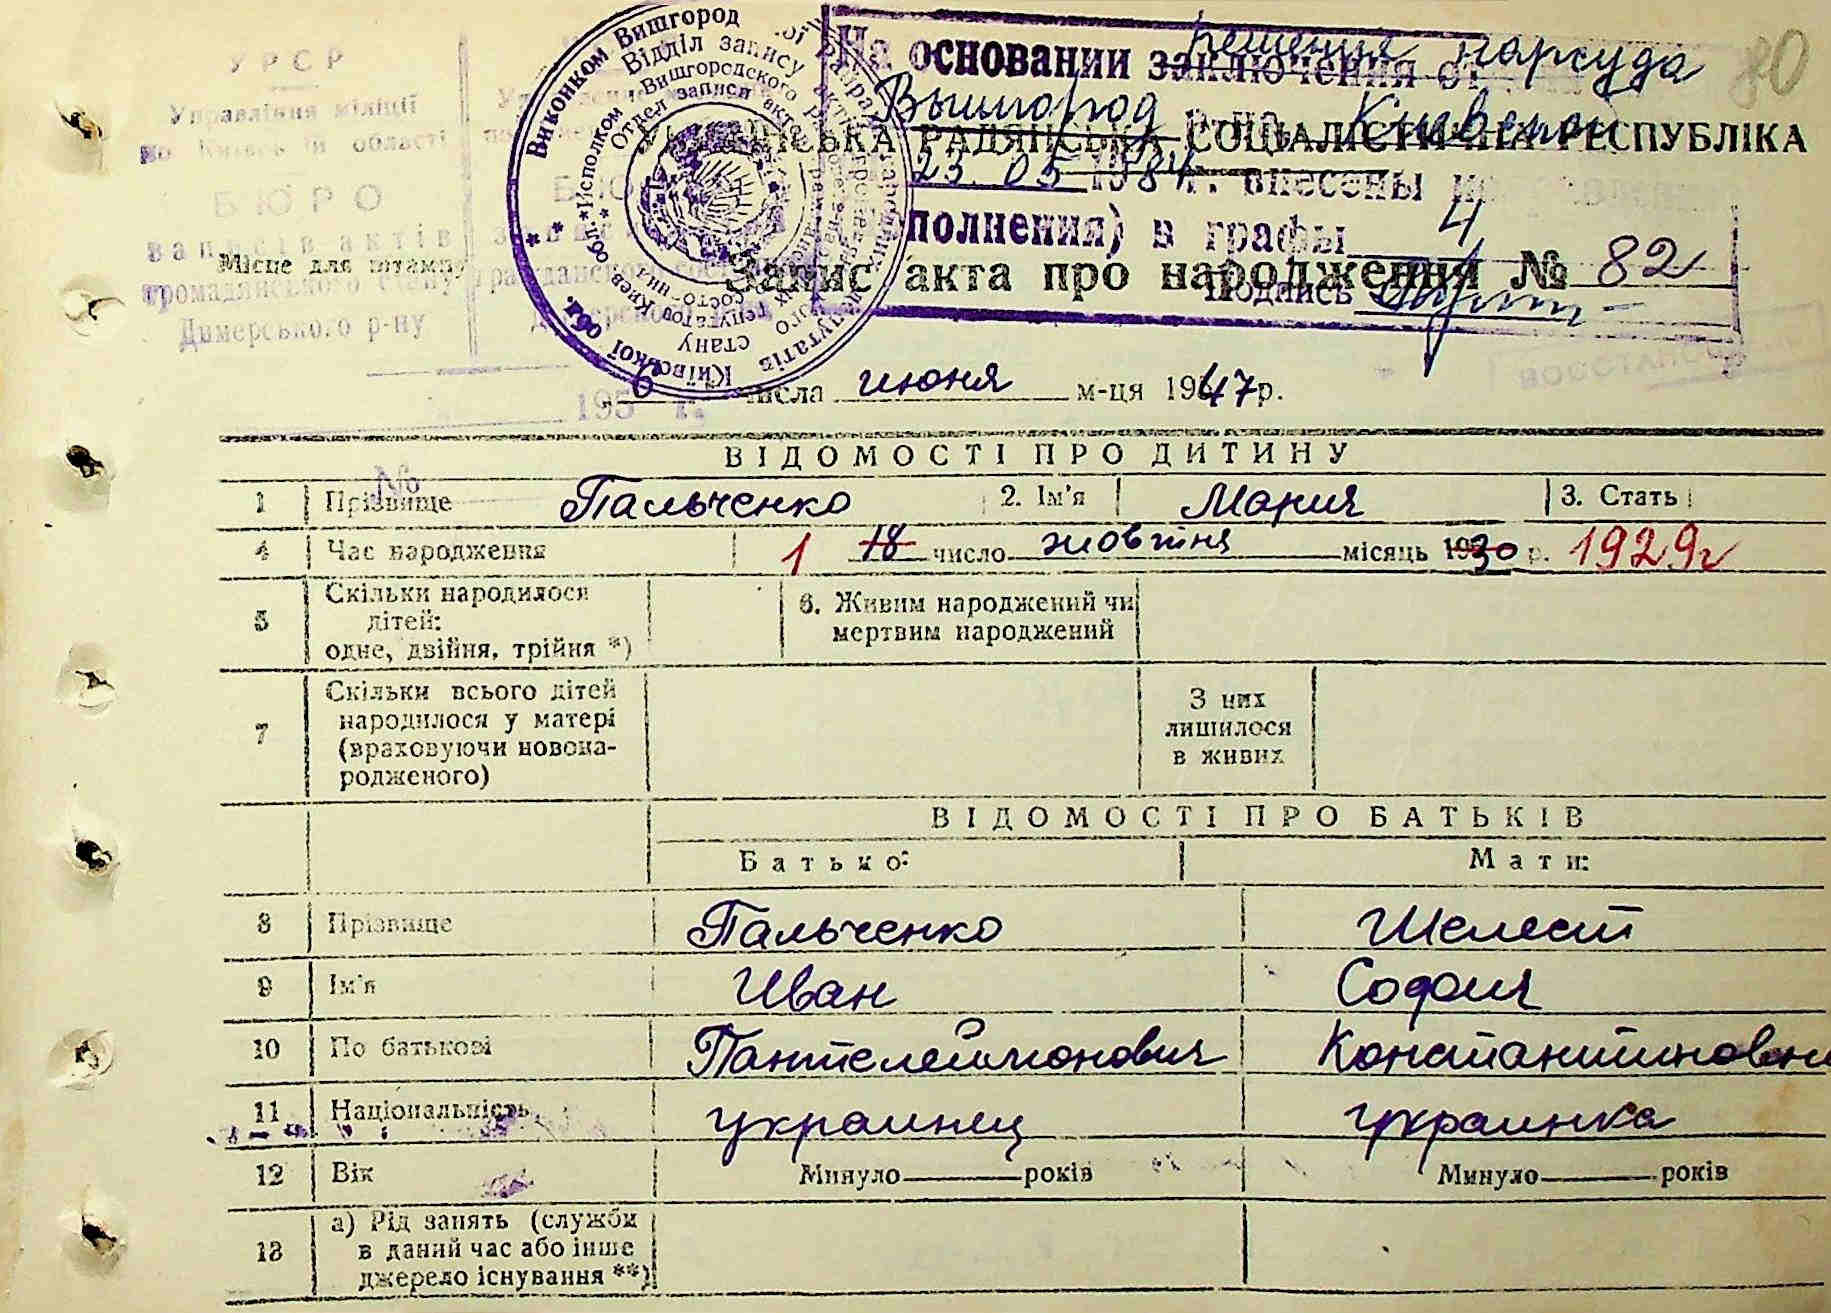 80
УРСР
Управління міліції
по Київській області
БЮРО
записів актів
громадянського стану
Димерського р-ну
Місце для штампу
Виконком Вишгород
Київської обл.
Відділ запису актів
стану
Исполком Вышгородского
Отдел записи актов
На основании заключения от решения нарсуда
Вышгород р-на Киевской
23.05 1984 г. внесены
полнения) в графы 4
Подпись
УКРАЇНСЬКА РАДЯНСЬКА СОЦІАЛІСТИЧНА РЕСПУБЛІКА
Запис акта про народження № 82
ВОССТАНОВЛЕНО
6 числа июня м-ця 1947 р.
195 г.
№
ВІДОМОСТІ ПРО ДИТИНУ
1 Прізвище Пальченко 2. Ім'я Мария 3. Стать
4 Час народження 1 18 число жовтня місяць 1930 р. 1929 г
5 Скільки народилося
дітей:
одне, двійня, трійня *)
6. Живим народжений чи
мертвим народжений
7 Скільки всього дітей
народилося у матері
(враховуючи новона-
родженого)
З них
лишилося
в живих
ВІДОМОСТІ ПРО БАТЬКІВ
Батько: Мати:
8 Прізвище Пальченко Шелест
9 Ім'я Иван София
10 По батькові Пантелеймонович Константиновна
11 Національність украинец украинка
12 Вік Минуло років Минуло років
13 а) Рід занять (служби
в даний час або інше
джерело існування **)